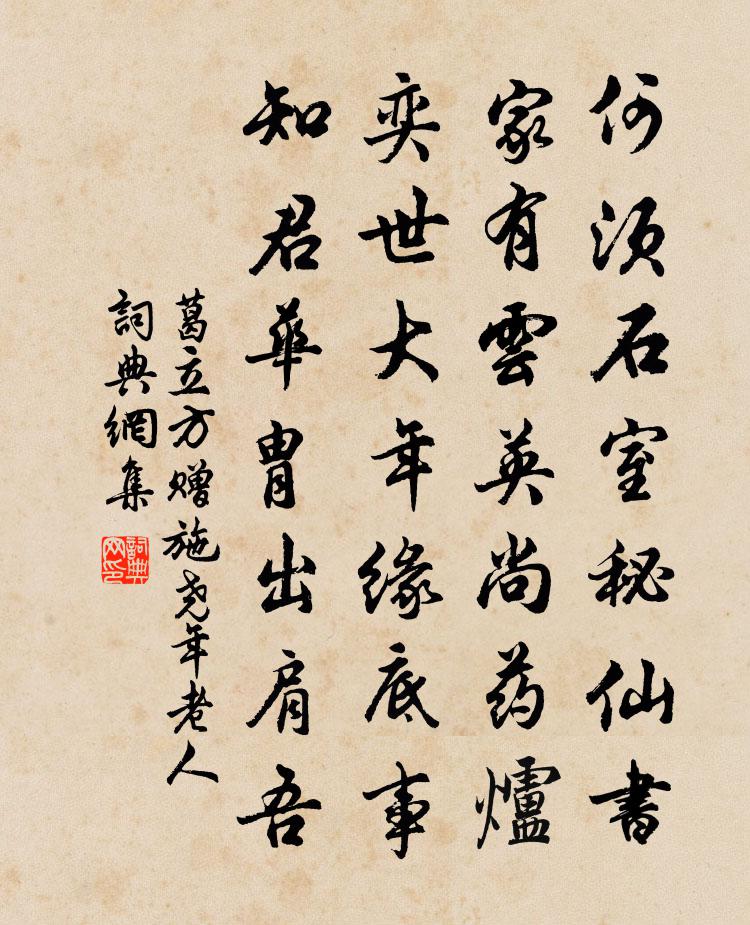 何须石室秘仙書
家有雲英尚药爐
奕世大年緣底事
知君華胄出肩吾
葛立方赠施尧年老人
詞典網集
詞典网印